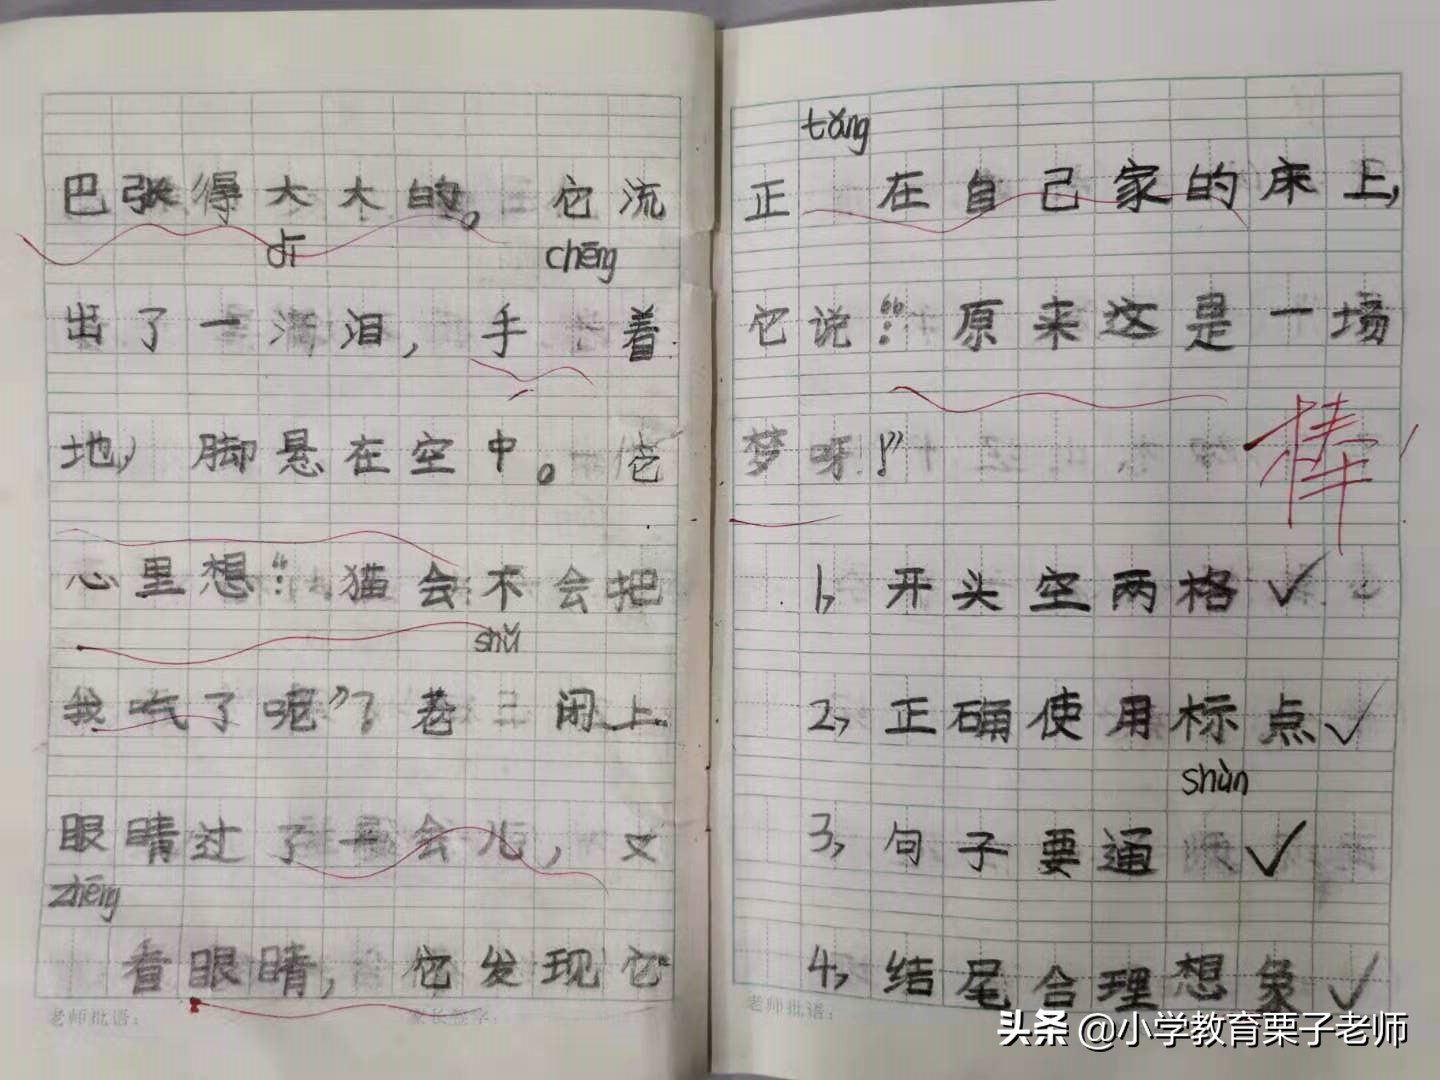 巴张得大大的。它流
dī chēng
出了一滴泪，手 着
地，脚悬在空中。它
心里想：“猫会不会把
shǔ
我吃了呢”？老 闭上
眼睛过了一会儿，又
zhēng
看眼睛，它发现它
老师批语：
家长签字：
tǎng
正 在自己家的床上，
它说：“原来这是一场
梦呀！”
棒！
1，开头空两格✓
2，正确使用标点✓
shùn
3，句子要通 ✓
4，结尾合理想象✓
老师批语：
头条@小学教育栗子老师